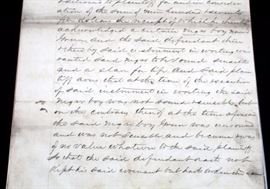 of the sum of
Dollars the receipt of which is hereby
acknowledged a certain negro boy named
and the said defendant then
there by said instrument in writing war
ranted said negro to be sound sensible
and a slave for life And said plain
tiff avers that at the time of the execution
of said instrument in writing the said
Negro boy was not sound & sensible but
on the contrary thereof at the time aforesaid
the said Negro boy was unsound
and was not sensible and became and was
of no value whatever to the said plaintiff
So that the said defendant hath not
kept his said covenant but hath broken